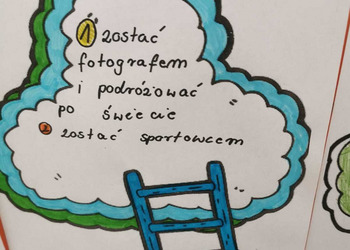 1 zostać
fotografem
i podróżować
po świecie
2 zostać sportowcem